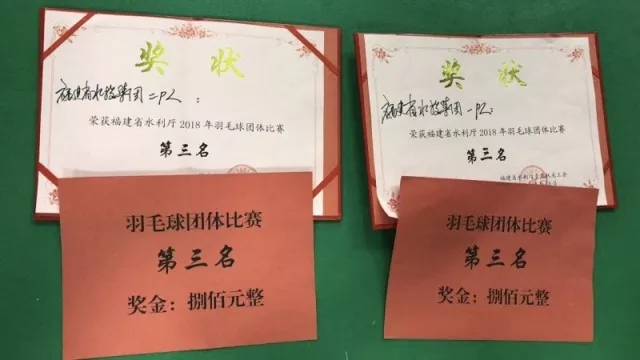 奖状
福建省水投集团二队：
荣获福建省水利厅2018年羽毛球团体比赛
第三名
羽毛球团体比赛
第三名
奖金：捌佰元整
奖状
福建省水投集团一队：
荣获福建省水利厅2018年羽毛球团体比赛
第三名
羽毛球团体比赛
第三名
奖金：捌佰元整